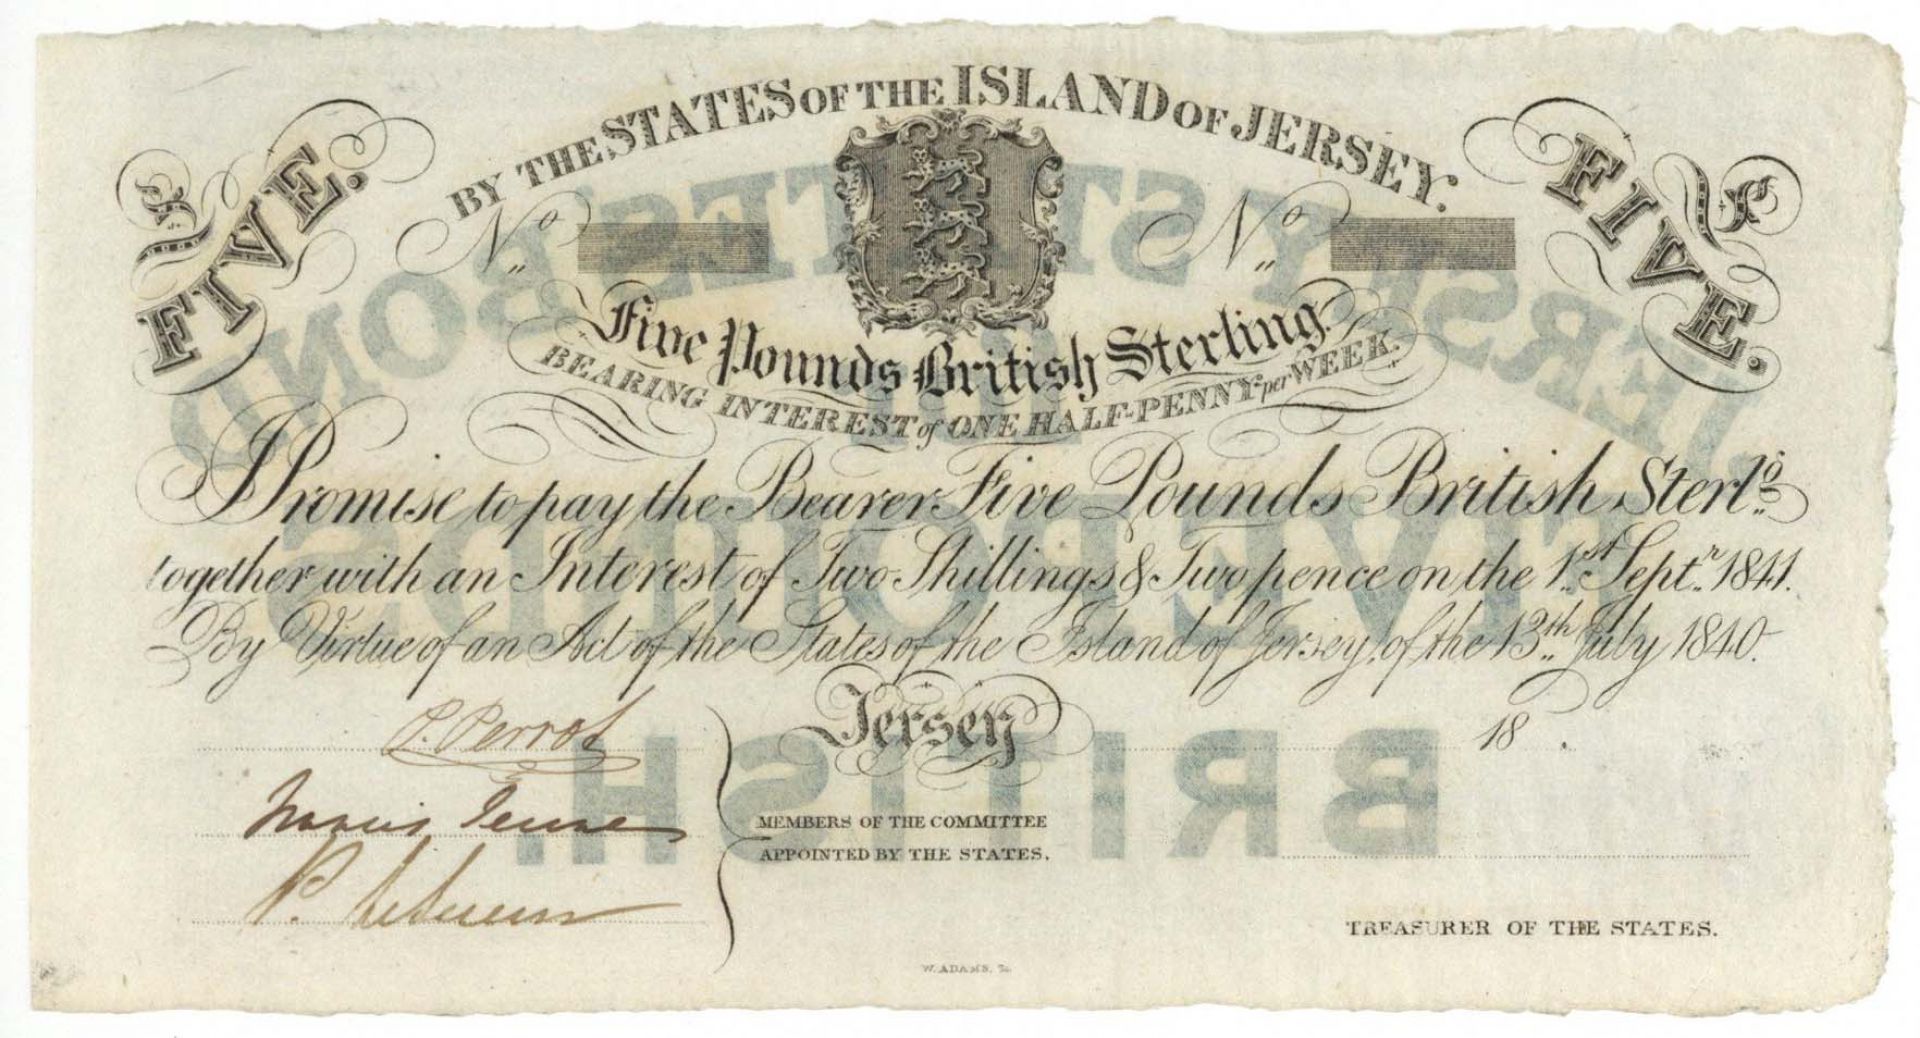 BY THE STATES OF THE ISLAND OF JERSEY.
£ FIVE.
£ FIVE.
No
No
Five Pounds British Sterling.
BEARING INTEREST of ONE HALF-PENNY per WEEK.
I Promise to pay the Bearer Five Pounds British Sterlg
together with an Interest of Two Shillings & Two pence on the 1st Septr 1841.
By Virtue of an Act of the States of the Island of Jersey, of the 13th July 1840.
Jersey 18 .
Perrot
Francis
P.
MEMBERS OF THE COMMITTEE
APPOINTED BY THE STATES.
TREASURER OF THE STATES.
W. ADAMS, Sc.
JERSEY STATES BOND
FIVE POUNDS
BRITISH.